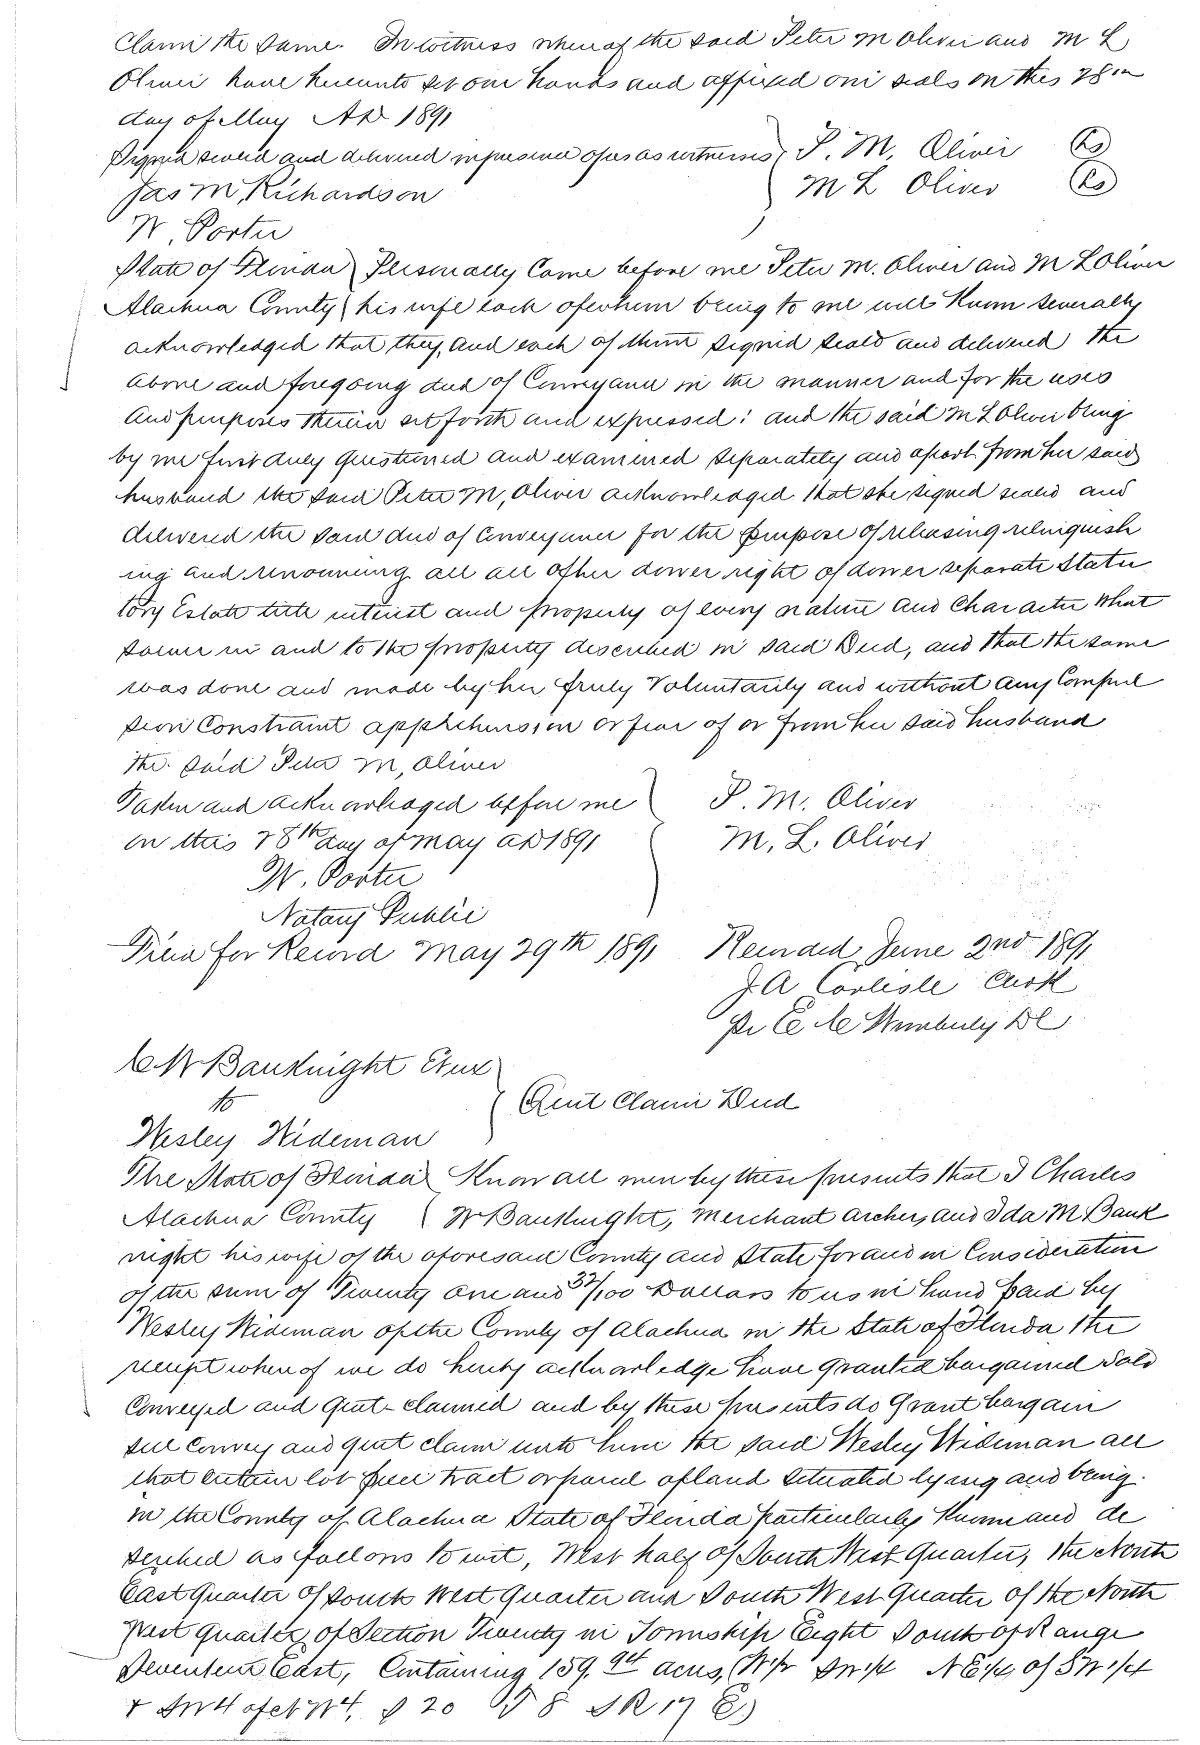 Claim the same. In witness whereof the said Peter M Oliver and M L
Oliver have hereunto set our hands and affixed our seals on this 28th
day of May AD 1891
Signed sealed and delivered in presence of us as witnesses } P. M. Oliver (Ls)
Jas M, Richardson M L Oliver (Ls)
W. Porter
State of Florida } Personally Came before me Peter M. Oliver and M L Oliver
Alachua County { his wife each of whom being to me well Known severally
acknowledged that they, and each of them signed seald and delivered the
above and foregoing deed of Conveyance in the manner and for the uses
and purposes therein set forth and expressed: and the said M L Oliver being
by me first duly questioned and examined separately and apart from her said
husband the said Peter M, Oliver acknowledged that she signed sealed and
delivered the said deed of Conveyance for the purpose of releasing relinquish
ing and renouncing all all other dower right of dower separate Statu
tory Estate title interest and property of every nature and Character What
soever in and to the property described in said Deed, and that the same
was done and made by her freely Voluntarily and without any Compul
sion Constraint apprehension or fear of or from her said husband
the said Peter M, Oliver
Taken and acknowledged before me } P. M. Oliver
on this 28th day of May AD 1891 M. L. Oliver
W. Porter
Notary Public
Filed for Record May 29th 1891 Recorded June 2nd 1891
J A Carlisle Clerk
pr E C Wimberly DC
C W Bauknight Etux
to } Quit Claim Deed
Wesley Wideman
The State of Florida } Know all men by these presents that I Charles
Alachua County { W Bauknight, Merchant Archer, and Ida M Bauk
night his wife of the aforesaid County and State for and in Consideration
of the sum of Twenty one and 32/100 Dollars to us in hand paid by
Wesley Wideman of the County of Alachua in the State of Florida the
receipt where of we do hereby acknowledge have granted bargained Sold
Conveyed and quit-claimed and by these presents do Grant bargain
sell Convey and quit claim unto him the said Wesley Wideman all
that certain lot piece tract or parcel of land situated lying and being
in the County of Alachua State of Florida particularly Known and de
scribed as follows to wit, West half of South West Quarter, the North
East Quarter of South West Quarter and South West Quarter of the North
West Quarter of Section Twenty in Township Eight South of Range
Seventeen East, Containing 159.94 acres, (W 1/2 SW 1/4 NE 1/4 of SW 1/4
& SW4 of N W4, S 20 T 8 S R 17 E)